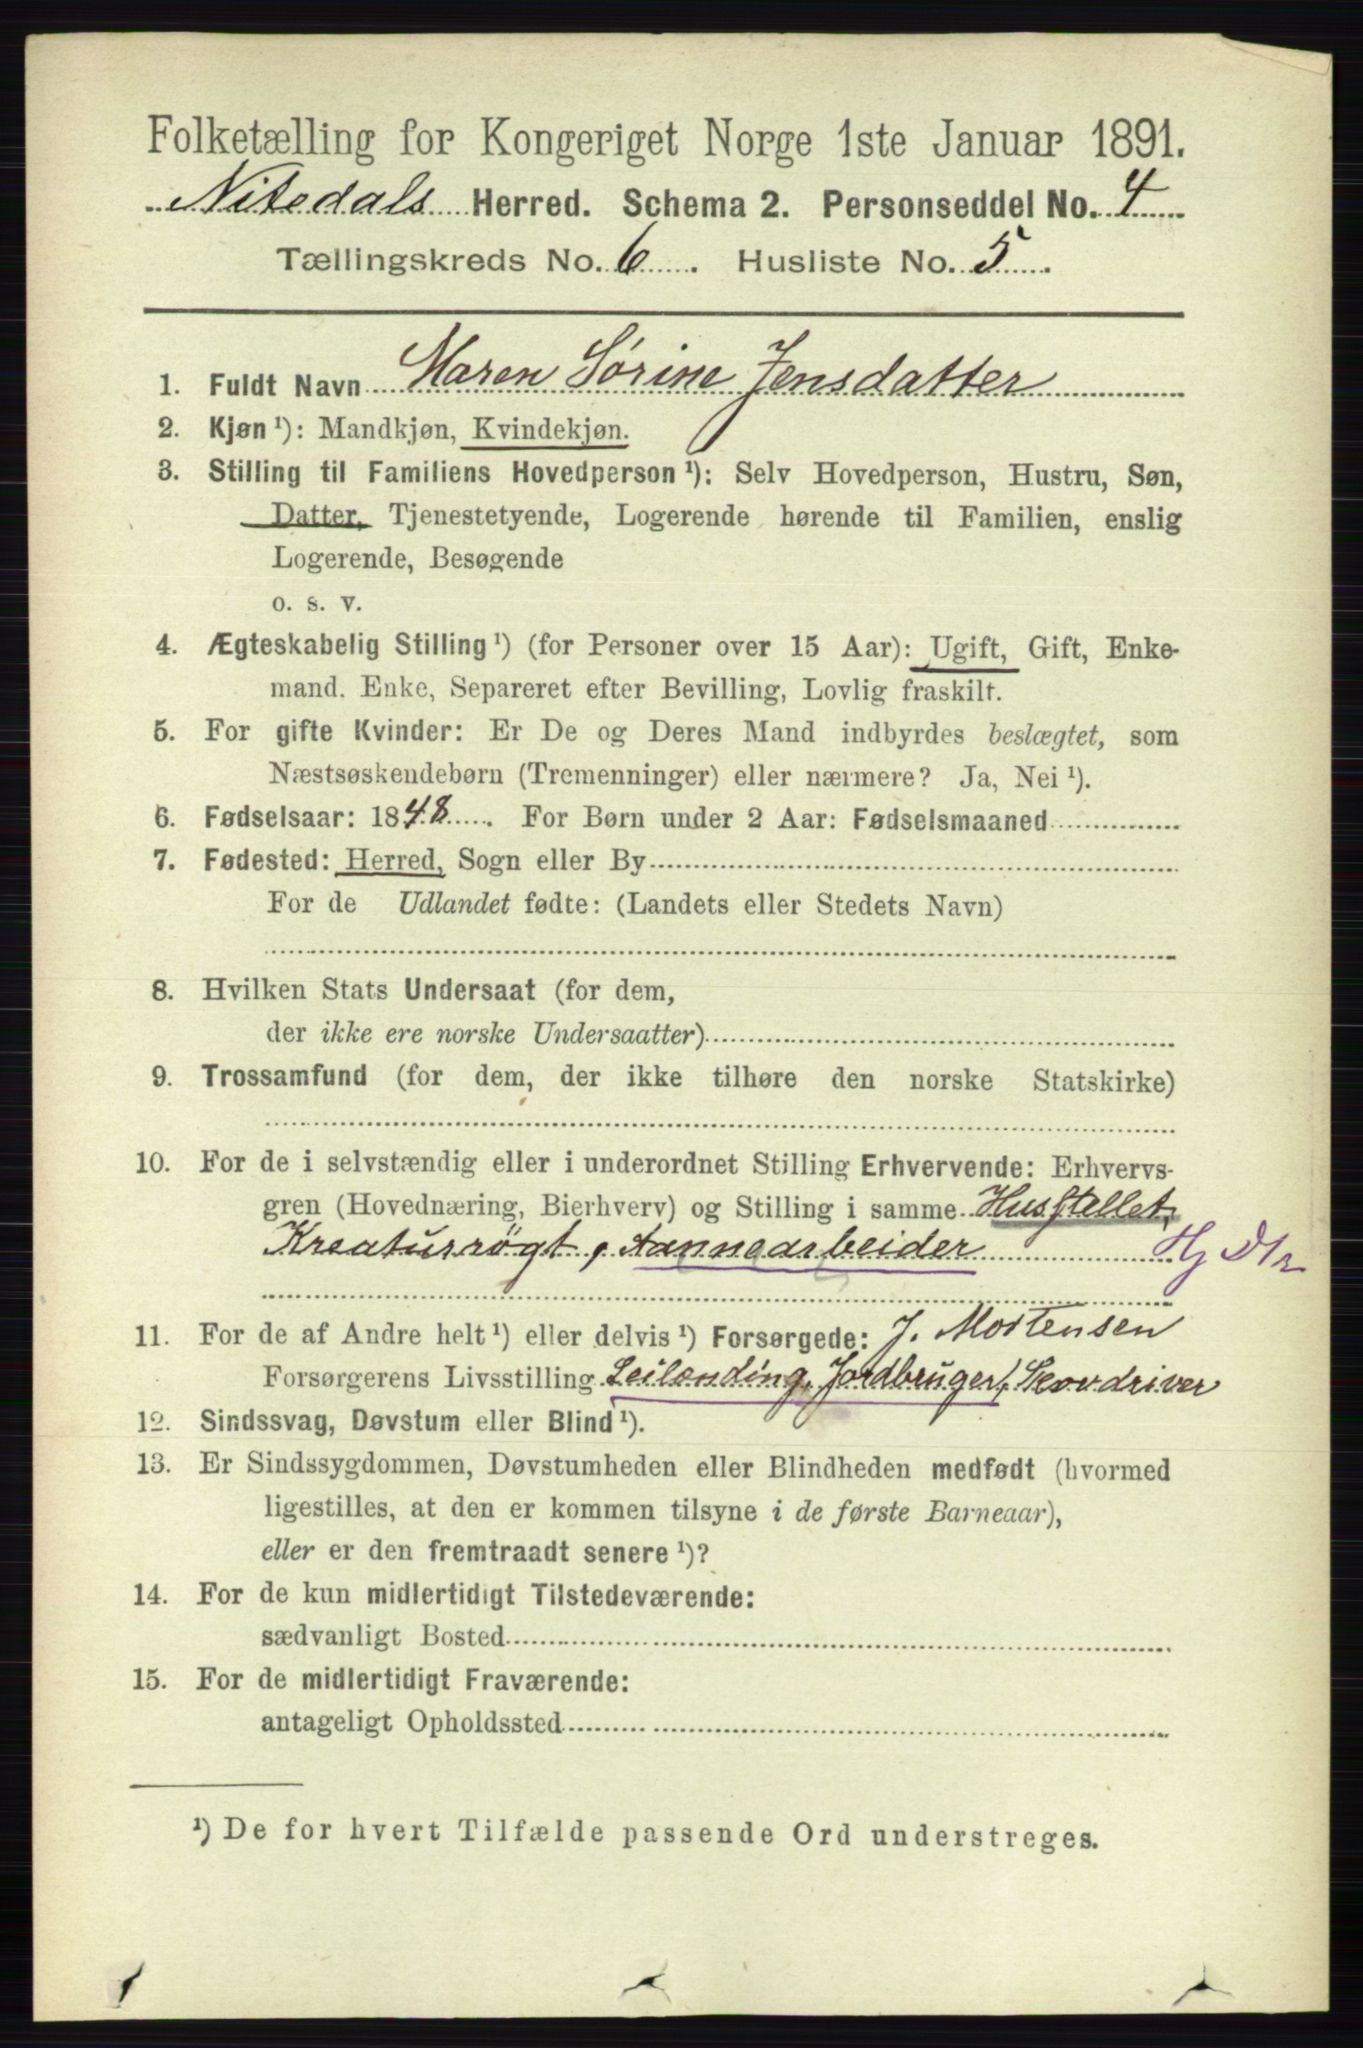 Folketælling for Kongeriget Norge 1ste Januar 1891.
Nitedals Herred. Schema 2. Personseddel No. 4
Tællingskreds No. 6. Husliste No. 5.
1. Fuldt Navn Maren Sørine Jensdatter
2. Kjøn ¹): Mandkjøn, Kvindekjøn.
3. Stilling til Familiens Hovedperson ¹): Selv Hovedperson, Hustru, Søn,
Datter, Tjenestetyende, Logerende hørende til Familien, enslig
Logerende, Besøgende
o. s. v.
4. Ægteskabelig Stilling ¹) (for Personer over 15 Aar): Ugift, Gift, Enke-
mand. Enke, Separeret efter Bevilling, Lovlig fraskilt.
5. For gifte Kvinder: Er De og Deres Mand indbyrdes beslægtet, som
Næstsøskendebørn (Tremenninger) eller nærmere? Ja, Nei ¹).
6. Fødselsaar: 1848. For Børn under 2 Aar: Fødselsmaaned
7. Fødested: Herred, Sogn eller By
For de Udlandet fødte: (Landets eller Stedets Navn)
8. Hvilken Stats Undersaat (for dem,
der ikke ere norske Undersaatter)
9. Trossamfund (for dem, der ikke tilhøre den norske Statskirke)
10. For de i selvstændig eller i underordnet Stilling Erhvervende: Erhvervs-
gren (Hovednæring, Bierhverv) og Stilling i samme Husstellet,
Kreaturrøgt, Aannearbeider Hj Dtr
11. For de af Andre helt ¹) eller delvis ¹) Forsørgede: J. Mortensen
Forsørgerens Livsstilling Leilænding, Jordbruger, Skovdriver
12. Sindssvag, Døvstum eller Blind ¹).
13. Er Sindssygdommen, Døvstumheden eller Blindheden medfødt (hvormed
ligestilles, at den er kommen tilsyne i de første Barneaar),
eller er den fremtraadt senere ¹)?
14. For de kun midlertidigt Tilstedeværende:
sædvanligt Bosted
15. For de midlertidigt Fraværende:
antageligt Opholdssted
¹) De for hvert Tilfælde passende Ord understreges.